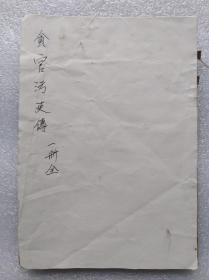 貪官污吏傳 一册全